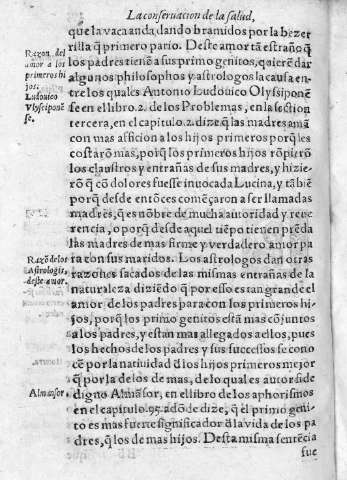 La conseruacion de la salud,
que la vaca anda, dando bramidos por la bezer
rilla q̃ primero pario. Deste amor tã estraño q̃
Razon del
amor a los
primeros hi
jos:
Ludouico
Vlysiponẽ
se.
los padres tienẽ a sus primogenitos, quierẽ dar
algunos philosophos y astrologos la causa en
tre los quales Antonio Ludouico Olyssiponẽ
se en el libro. 2. de los Problemas, en la section
tercera, en el capitulo. 2. dize q̃ las madres amã
con mas afficion a los hijos primeros porq̃ les
costarõ mas, porq̃ los primeros hijos rõpierõ
los claustros y entrañas de sus madres, y hizie
rõ q̃ cõ dolores fuesse inuocada Lucina, y tãbiẽ
porq̃ desde entõces comẽçaron a ser llamadas
madres, q̃ es nõbre de mucha autoridad y reue
rencia, o porq̃ desde aquel tiẽpo tienen prẽda
las madres de mas firme y verdadero amor pa
Razõ de los
Astrologis,
deste amor.
ra con sus maridos. Los astrologos dan otras
razones sacados de las mismas entrañas de la
naturaleza diziẽdo q̃ por esso es tan grande el
amor de los padres para con los primeros hi-
jos, porq̃ los primogenitos està mas cõjuntos
a los padres, y estan mas allegados a ellos, pues
los hechos de los padres y sus successos se cono
cẽ por la natiuidad d̃ los hijos primeros mejor
q̃ por la de los de mas, de lo qual es autor si de
Almansor.
digno Almãsor, en el libro de los aphorismos
en el capitulo. 95. adõ de dize, q̃ el primo geni-
to es mas fuerte significador d̃ la vida de los pa
dres, q̃ los de mas hijos. Desta misma sentẽcia
fue